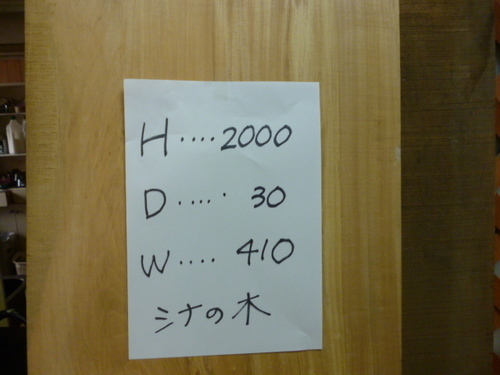 H....2000
D....・30
W....410
シナの木